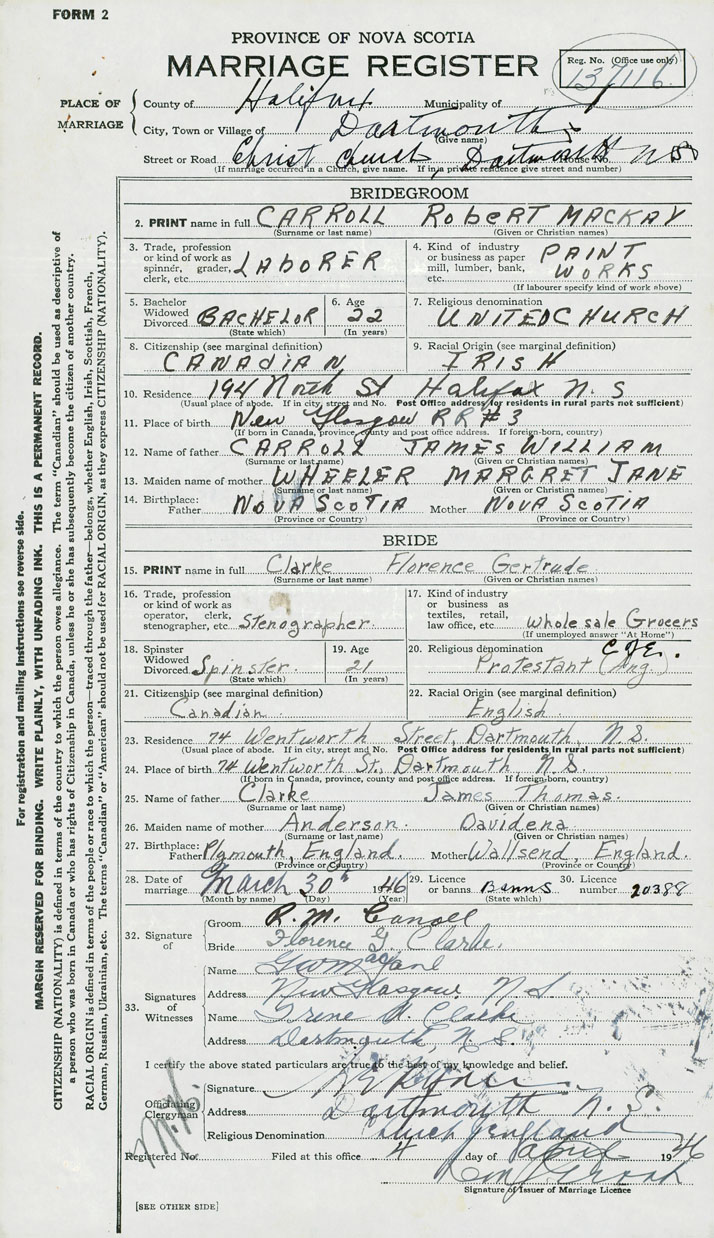 FORM 2
PROVINCE OF NOVA SCOTIA
MARRIAGE REGISTER
Reg. No. (Office use only)
137116
PLACE OF MARRIAGE
County of Halifax Municipality of
City, Town or Village of Dartmouth
(Give name)
Street or Road Christ Church, Dartmouth House No. N S
(If marriage occurred in a Church, give name. If in a private residence give street and number)
BRIDEGROOM
2. PRINT name in full CARROLL RobERT MACKAY
(Surname or last name) (Given or Christian names)
3. Trade, profession or kind of work as spinner, grader, clerk, etc. LAbORER
4. Kind of industry or business as paper mill, lumber, bank, etc. PAINT WORKS
(If labourer specify kind of work above)
5. Bachelor Widowed Divorced BACHELOR
(State which)
6. Age 22
(In years)
7. Religious denomination UNITED CHURCH
8. Citizenship (see marginal definition) CANADIAN
9. Racial Origin (see marginal definition) IRISH
10. Residence 194 North St Halifax N. S
(Usual place of abode. If in city, street and No. Post Office address for residents in rural parts not sufficient)
11. Place of birth New Glasgow RR #3
(If born in Canada, province, county and post office address. If foreign-born, country)
12. Name of father CARROLL JAMES WILLIAM
(Surname or last name) (Given or Christian names)
13. Maiden name of mother WHEELER MARGRET JANE
(Surname or last name) (Given or Christian names)
14. Birthplace: Father NOVA SCOTIA Mother NOVA SCOTIA
(Province or Country) (Province or Country)
BRIDE
15. PRINT name in full Clarke Florence Gertrude
(Surname or last name) (Given or Christian names)
16. Trade, profession or kind of work as operator, clerk, stenographer, etc. Stenographer.
17. Kind of industry or business as textiles, retail, law office, etc. whole sale Grocers
(If unemployed answer "At Home")
18. Spinster Widowed Divorced Spinster.
(State which)
19. Age 21
(In years)
20. Religious denomination C of E. Protestant (Ang.)
21. Citizenship (see marginal definition) Canadian
22. Racial Origin (see marginal definition) English.
23. Residence 74 Wentworth Street, Dartmouth, N.S.
(Usual place of abode. If in city, street and No. Post Office address for residents in rural parts not sufficient)
24. Place of birth 74 Wentworth St., Dartmouth, N.S.
(If born in Canada, province, county and post office address. If foreign-born, country)
25. Name of father Clarke James Thomas.
(Surname or last name) (Given or Christian names)
26. Maiden name of mother Anderson. Davidena
(Surname or last name) (Given or Christian names)
27. Birthplace: Father Plymouth, England. Mother Wallsend, England.
(Province or Country) (Province or Country)
28. Date of marriage March 30th 1946
(Month by name) (Day) (Year)
29. Licence or banns Banns
(State which)
30. Licence number 20388
32. Signature of
Groom R. M. Carroll
Bride Florence G. Clarke.
33. Signatures of Witnesses
Name
Address New Glasgow N S
Name Irene A. Clarke
Address Dartmouth, N.S.
I certify the above stated particulars are true to the best of my knowledge and belief.
Officiating Clergyman
Signature
Address Dartmouth N. S.
Religious Denomination Church of England
Registered No. Filed at this office 4 day of April 1946
Signature of Issuer of Marriage Licence
[SEE OTHER SIDE]
For registration and mailing instructions see reverse side.
MARGIN RESERVED FOR BINDING. WRITE PLAINLY, WITH UNFADING INK. THIS IS A PERMANENT RECORD.
CITIZENSHIP (NATIONALITY) is defined in terms of the country to which the person owes allegiance. The term "Canadian" should be used as descriptive of
a person who was born in Canada or who has rights of Citizenship in Canada, unless he or she has subsequently become the citizen of another country.
RACIAL ORIGIN is defined in terms of the people or race to which the person—traced through the father—belongs, whether English, Irish, Scottish, French,
German, Russian, Ukrainian, etc. The terms "Canadian" or "American" should not be used for RACIAL ORIGIN, as they express CITIZENSHIP (NATIONALITY).